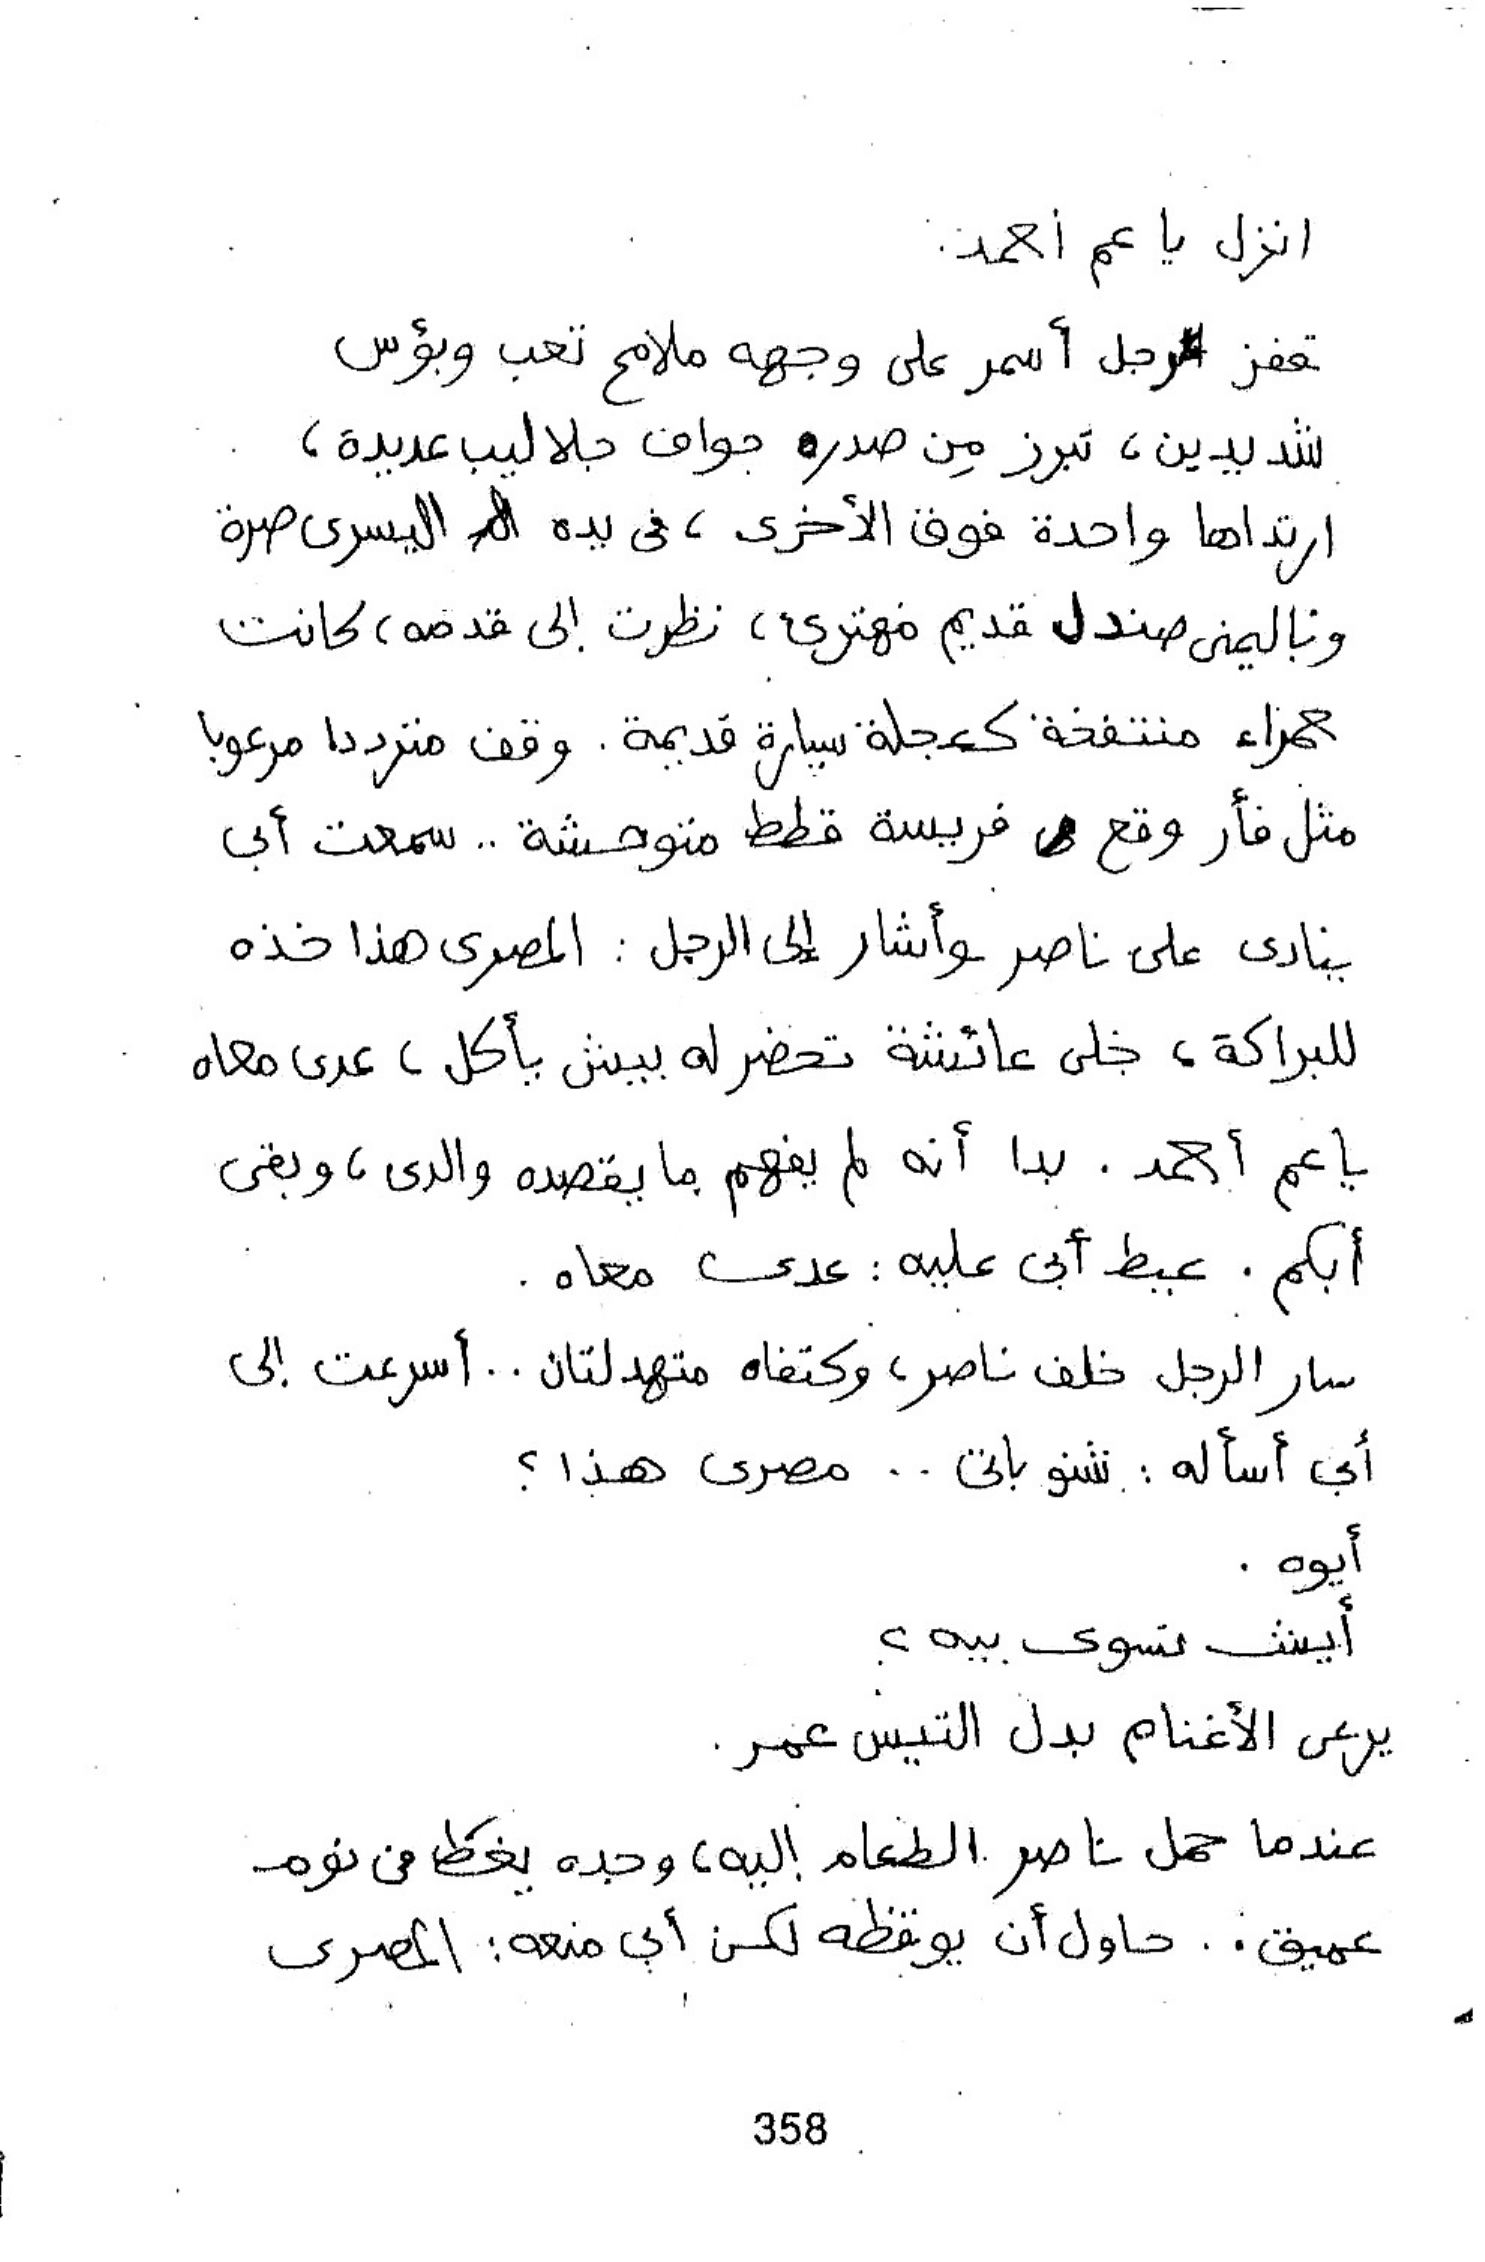 انزل يا عم أحمد.
قفز رجل أسمر على وجهه ملامح تعب وبؤس
شديدين، تبرز مِن صدره حواف جلاليب عديدة،
ارتداها واحدة فوق الأخرى، فى يده اليسرى صرة
وباليمنى صندل قديم مهترئ، نظرت إلى قدمه، كانت
حمراء منتفخة كعجلة سيارة قديمة. وقف مترددا مرعوبا
مثل فأر وقع فريسة قطط متوحشة .. سمعت أبي
ينادى على ناصر وأشار إلى الرجل : المصرى هذا خذه
للبراكة، خلى عائشة تحضر له بيش يأكل، عدى معاه
يا عم أحمد. بدا أنه لم يفهم ما يقصده والدى، وبقى
أبكم. عيط أبى عليه : عدى معاه.
سار الرجل خلف ناصر، وكتفاه متهدلتان .. أسرعت إلى
أبي أسأله : شنو باتى .. مصرى هذا؟
أيوه.
أيش تسوى بيه؟
يرعى الأغنام بدل التيس عمر.
عندما حمل ناصر الطعام إليه، وجده يغط فى نوم
عميق .. حاول أن يوقظه لكن أبي منعه : المصرى
358